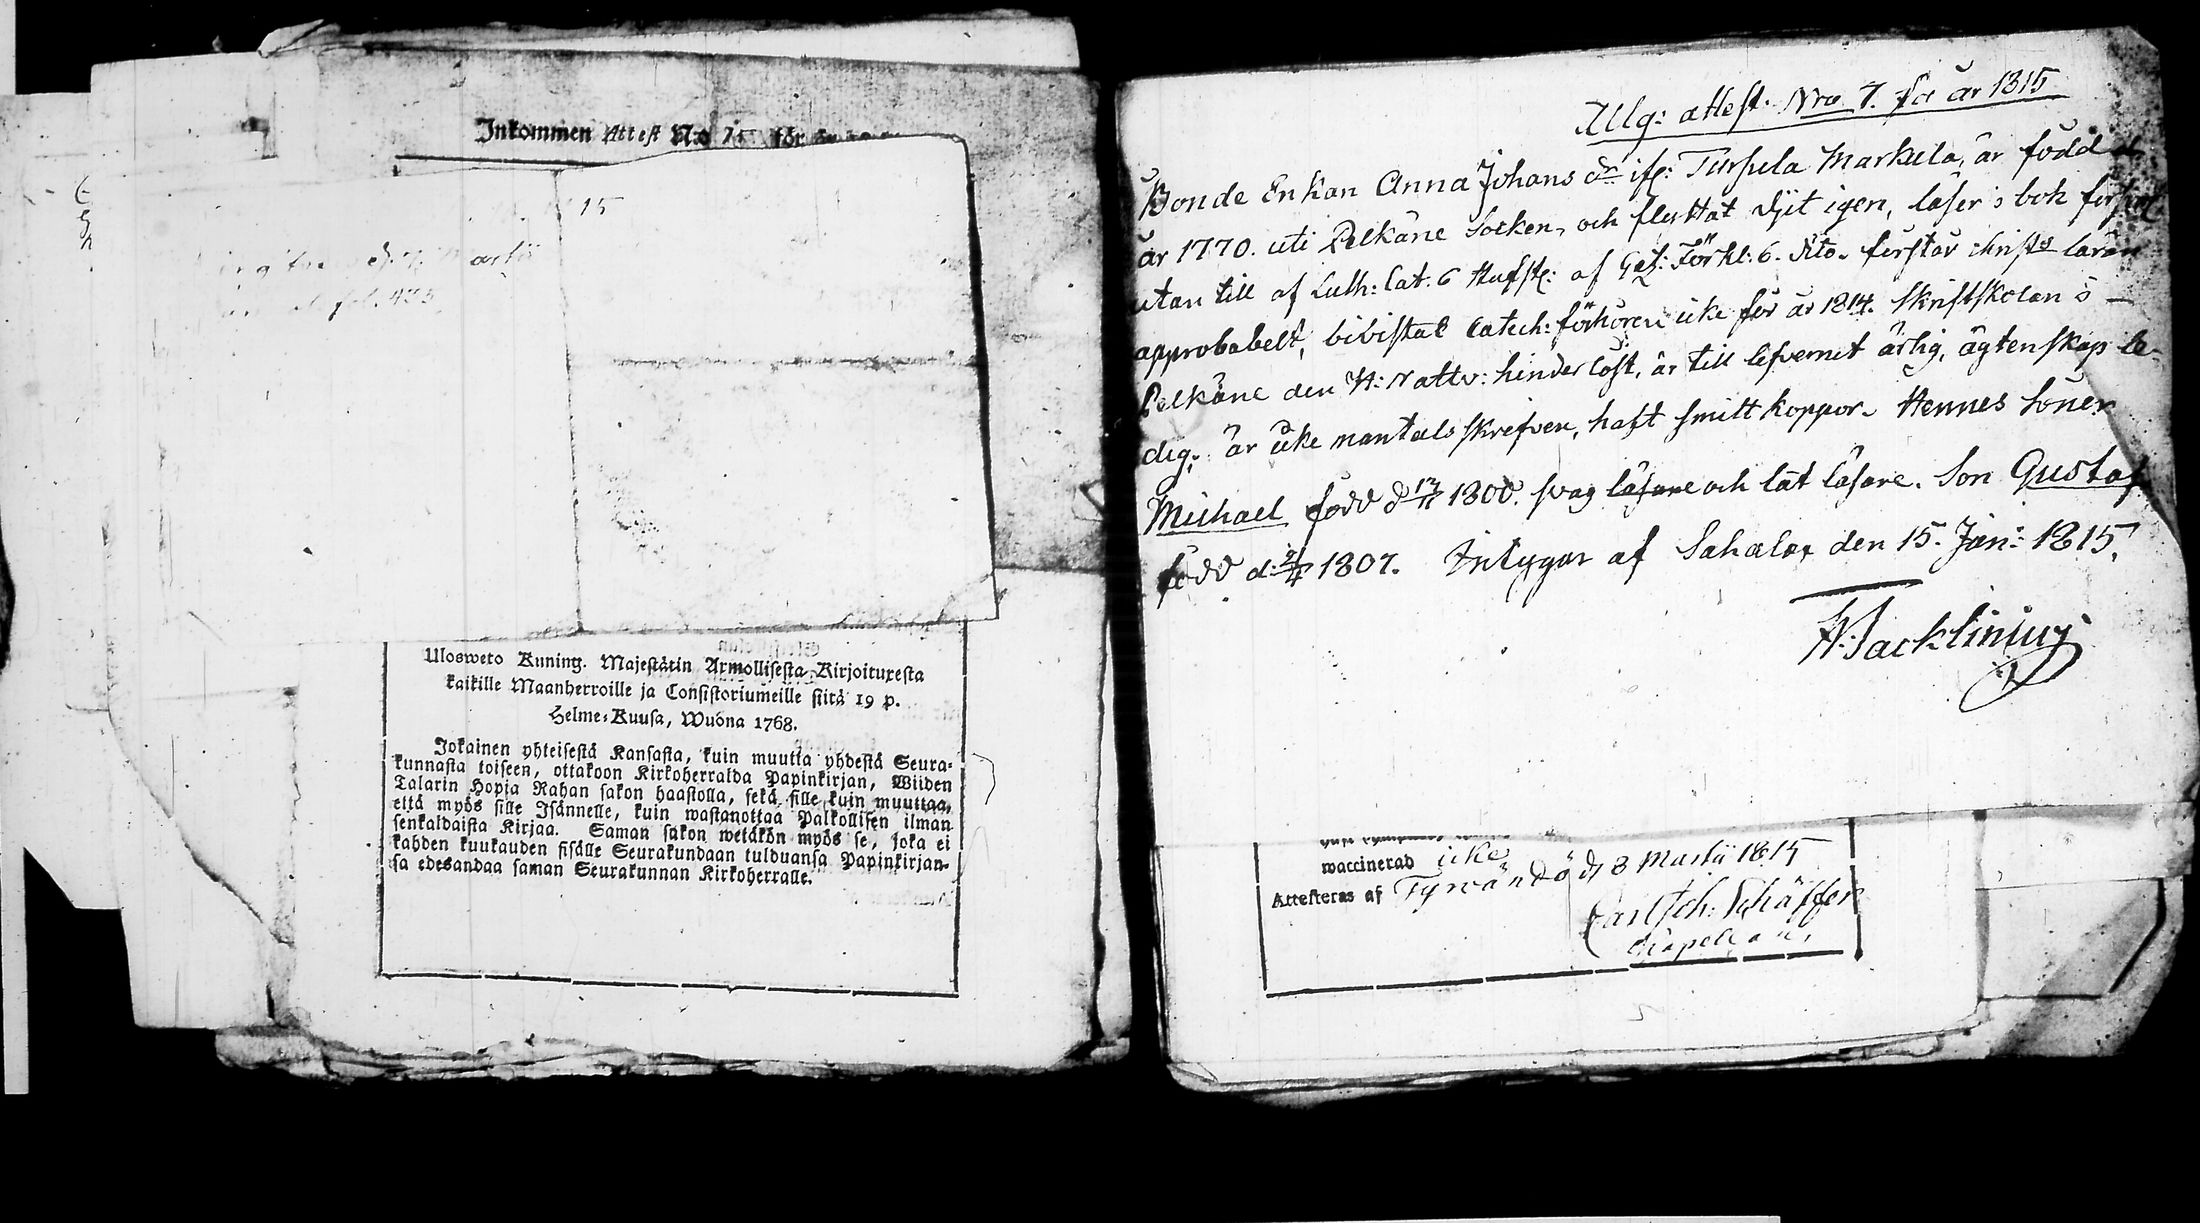 Inkommen Attest N:o 75 för
15
d. Martii
fol. 435
Ulosweto Kuning. Majestätin Armollisesta Kirjoituxesta
kaikille Maanherroille ja Consistoriumeille siitä 19 p.
Helme-Kuusa, Wuona 1768.
Jokainen yhteisestä Kansasta, kuin muutta yhdestä Seura-
kunnasta toiseen, ottakoon Kirkoherralda Papinkirjan, Wiiden
Talarin Hopia Rahan sakon haastolla, sekä sille kuin muuttaa,
että myös sille Isännelle, kuin wastanottaa Palkollisen ilman
senkaldaista Kirjaa. Saman sakon wetäkön myös se, joka ei
kahden kuukauden sisälle Seurakundaan tulduansa Papinkirjan-
sa edesandaa saman Seurakunnan Kirkoherralle.
Utlg: attest. Nro 7. för år 1815
Bonde Enkan Anna Johans dr ifr: Turpela Markula, är född
år 1770. uti Pelkäne Socken, och flyttat dÿt igen, läser i bok
utan till af Luth: Cat. 6 Hufst: af Gez: Förkl: 6. dito. förstår christs läran
approbabelt, bivistat Catech: förhören icke för år 1814. Skriftskolan i
Pelkäne den H: Nattv: hinderlöst, är till lefvernet ärlig, ägtenskap le-
dig, är icke mantals skrefven, haft smittkoppor. Hennes Söner
Michael född d 1800. svag läsare och lät läsare. Son Gustaf
född d: 2/4 1807. Intygar af Sahalax den 15. Jan: 1815.
waccinerad icke
Attesteras af Tyrvändö d 8 Martii 1815
Carl Joh: Schäffer
Chapellan,